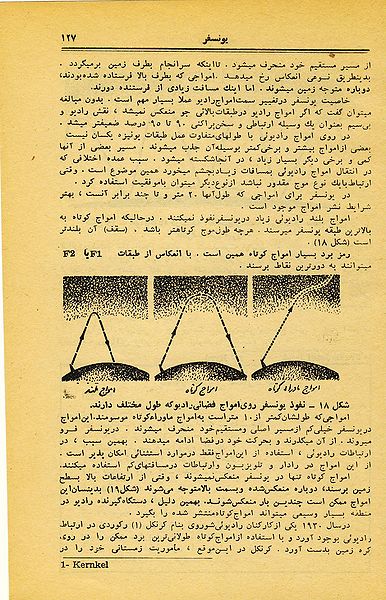 یونسفر ۱۲۷
از مسیر مستقیم خود منحرف میشود . تااینکه سرانجام بطرف زمین برمیگردد .
بدینطریق نوعی انعکاس رخ میدهد . امواجی که بطرف بالا فرستاده شده‌بودند،
دوباره متوجه زمین میشوند . اما اینك مسافت زیادی از فرستنده دورند.
خاصیت یونسفر درتغییر سمت‌امواج‌رادیو عملا بسیار مهم است . بدون مبالغه
میتوان گفت که اگر امواج رادیو درطبقات‌بالائی جو منعکس نمیشد ، نقش رادیو و
بی‌سیم بعنوان یك وسیله ارتباطی و سخن‌پراکنی ۹۰ تا ۹۵ درصد ضعیفتر میشد .
در روی امواج رادیوئی با طولهای‌متفاوت عمل طبقات یونیزه یکسان نیست
بعضی ازامواج بیشتر و برخی‌کمتر بوسیله‌آن جذب میشوند . مسیر بعضی از آنها
کمی و برخی دیگر بسیار زیاد ، در آنجاشکسته میشود . سبب عمده اختلافی که
در انتقال امواج رادیوئی بمسافات زیادبچشم میخورد همین موضوع است . وقتی
ارتباط‌بایك نوع موج مقدور نباشد ازنوع‌دیگر میتوان باموفقیت استفاده کرد .
در یونسفر برای امواجی که طول‌آنها ۲۰ متر و تا چند برابر آنست ، بهتر
شرایط نشر امواج موجود است .
امواج بلند رادیوئی زیاد دریونسفرنفوذ نمیکنند . درحالیکه امواج کوتاه به
بالاترین طبقه یونسفر میرسند . هرچه طول‌موج کوتاهتر باشد ، (سقف) آن بلندتر
است (شکل ۱۸) .
رمز برد بسیار امواج کوتاه همین است . با انعکاس از طبقات F1 یا F2
میتوانند به دورترین نقاط برسند .
امواج بلند امواج کوتاه امواج ماوراء کوتاه
شکل ۱۸ – نفوذ یونسفر روی‌امواج فضائی‌رادیوکه طول مختلف دارند.
امواجی‌که طولشان‌کمتر از ۱۰ متراست به‌امواج ماوراءکوتاه موسومند.این‌امواج
دریونسفر خیلی‌کم ازمسیر اصلی ومستقیم‌خود منحرف میشوند . دریونسفر فرو
میروند . از آن میگذرند و بحرکت خود درفضا ادامه میدهند . بهمین سبب ، در
ارتباطات رادیوئی ، استفاده از این‌امواج‌فقط درموارد استثنائی امکان پذیر است .
از این امواج در رادار و تلویزیون وارتباطات درمسافتهای‌کم استفاده میکنند.
امواج کوتاه تنها در یونسفر منعکس‌نمیشوند ، وقتی از ارتفاعات بالا بسطح
زمین برسند، دوباره منعکس‌شده وبسمت بالامتوجه می‌شوند (شکل۱۹) بدینسان‌این
امواج ممکن است چندین بار منعکس‌شوند. بهمین دلیل ، دستگاه‌گیرنده رادیو در
منطقه بسیار وسیعی میتواند امواج‌کوتاه‌منتشر شده را بگیرد .
درسال ۱۹۳۰ یکی ازکارکنان رادیوئی‌شوروی بنام کرنکل (۱) رکوردی در ارتباط
رادیوئی بوجود آورد و با استفاده ازامواج‌کوتاه طولانی‌ترین برد ممکن را در روی
کره زمین بدست آورد . کرنکل در این‌موقع ، ماموریت زمستانی خود را در
1- Kernkel